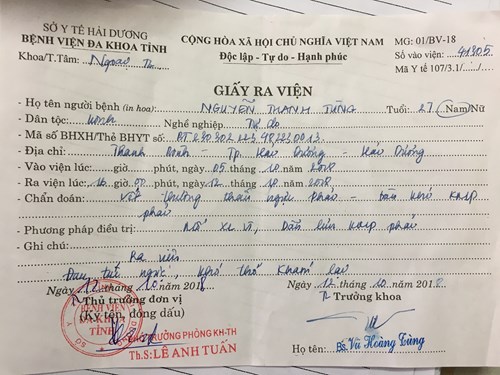 SỞ Y TẾ HẢI DƯƠNG
BỆNH VIỆN ĐA KHOA TỈNH
Khoa/T.Tâm: Ngoại Th
CỘNG HÒA XÃ HỘI CHỦ NGHĨA VIỆT NAM
Độc lập - Tự do - Hạnh phúc
MG: 01/BV-18
Số vào viện: 41805
Mã Y tế 107/3.1/
GIẤY RA VIỆN
- Họ tên người bệnh (in hoa): NGUYỄN THANH TÙNG Tuổi: 27 Nam/Nữ
- Dân tộc: Kinh Nghề nghiệp Tự do
- Mã số BHXH/Thẻ BHYT số:
- Địa chỉ: Thanh Bình - Tp. Hải Dương - Hải Dương
- Vào viện lúc: giờ phút, ngày 05 tháng 10 2018
- Ra viện lúc: 16 giờ 00 phút, ngày 12 tháng 10 2018
- Chẩn đoán: Vết thương thấu ngực phải - tràn khí KMP
phải
- Phương pháp điều trị: Mổ XL VT, Dẫn lưu KMP phải
- Ghi chú:
Ra viện
Đau, tức ngực, khó thở khám lại
Ngày 12 tháng 10 năm 2018
Thủ trưởng đơn vị
(Ký tên, đóng dấu)
BỆNH VIỆN
ĐA KHOA
TỈNH
TRƯỞNG PHÒNG KH-TH
Th.S: LÊ ANH TUẤN
Ngày 12 tháng 10 năm 2018
Trưởng khoa
Họ tên: Bs. Vũ Hoàng Tùng